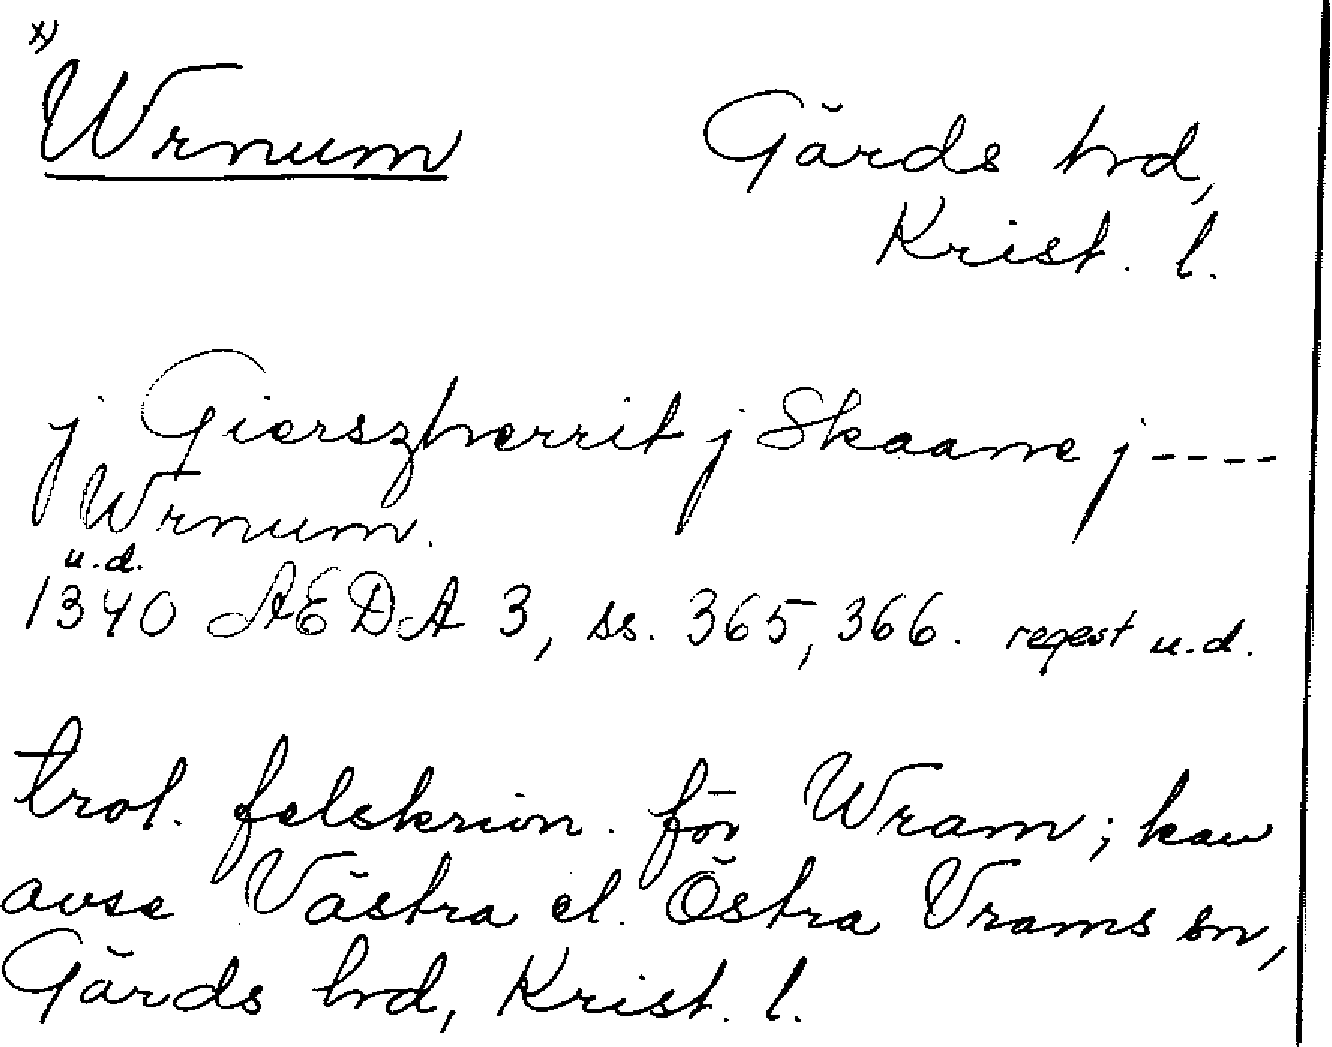 x)
Wrnum
Gärds hrd,
Krist. l.
j Gierszherrit j Skaane j ----
Wrnum.
u.d.
1340 ÆDA 3, ss. 365, 366. regest u.d.
trol. felskrivn. för Wram; kan
avse Västra el. Östra Vrams sn,
Gärds hrd, Krist. l.